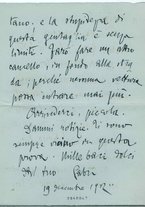 tano. E la stupidezza di
questa gentaglia è senza
limite. Farò fare un altro
cancello, in fondo alla stra-
da; perché nessuna vettura
possa entrare mai più.
Arrivederci, piccola.
Dammi notizie. Ti sono
sempre vicino in questa
prova. Mille baci dolci
dal tuo Gabri
19 dicembre 1902